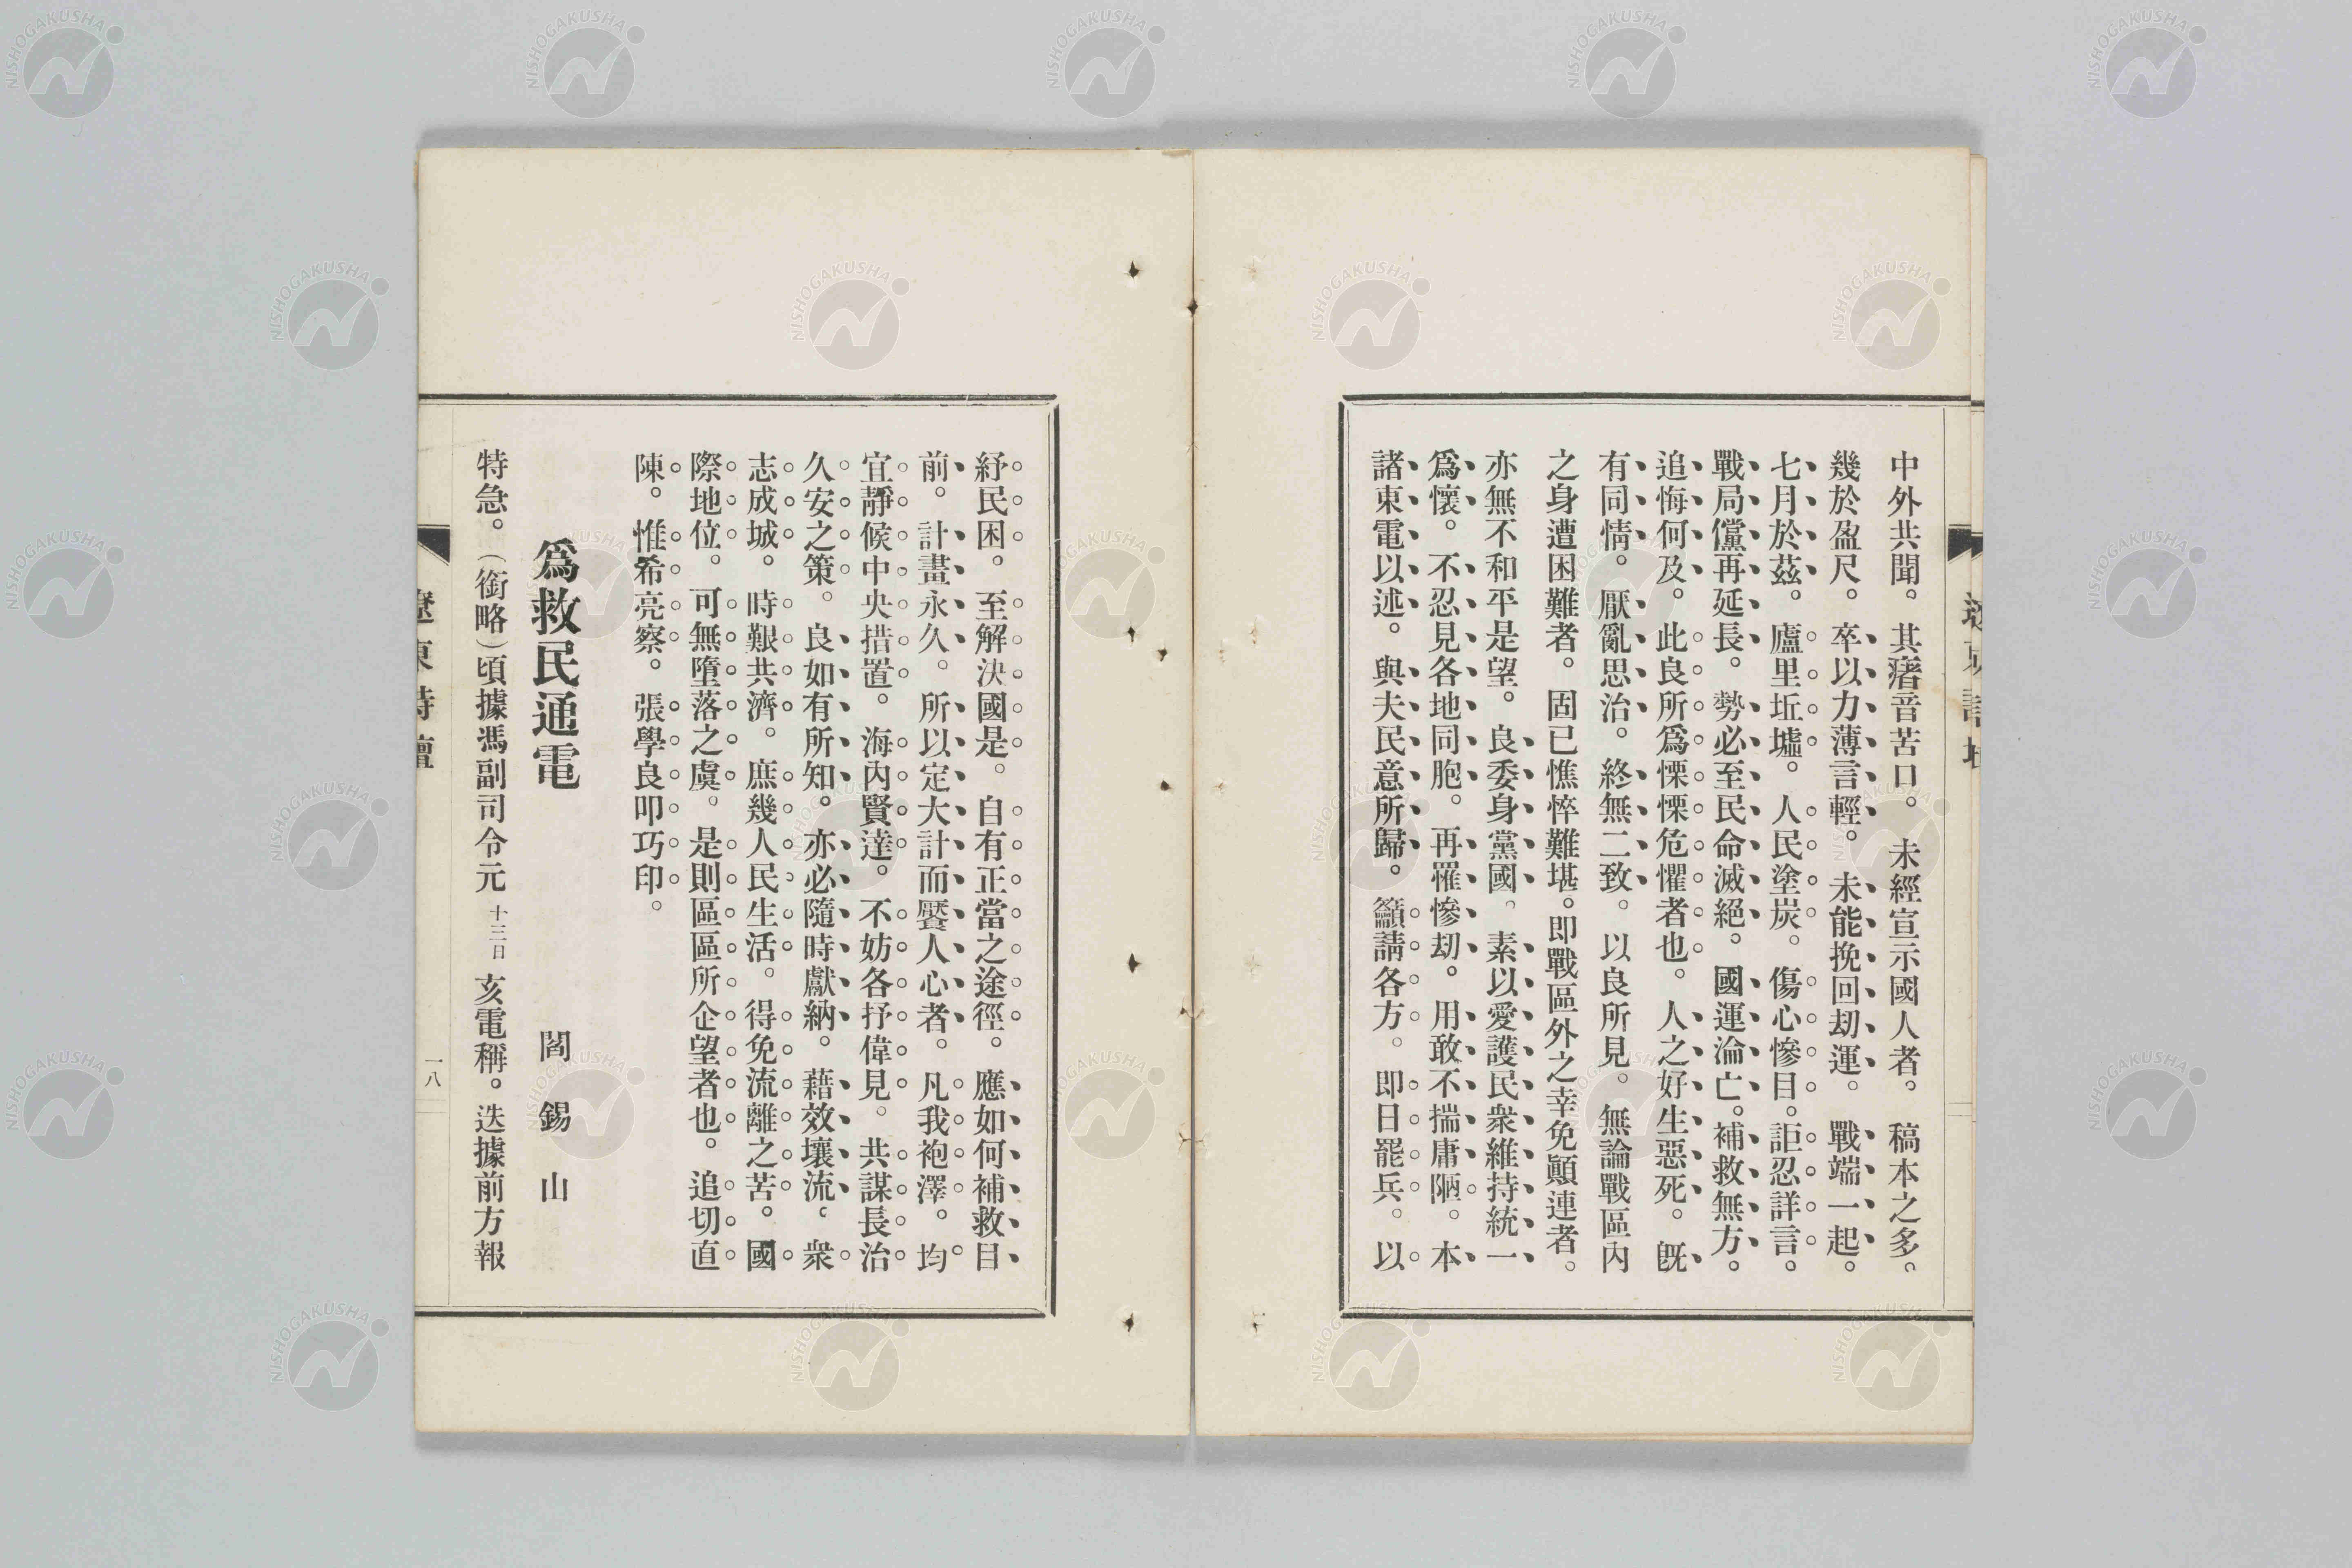 中外共聞。其瘏音苦口。未經宣示國人者。稿本之多。
幾於盈尺。卒以力薄言輕。未能挽回劫運。戰端一起。
七月於茲。廬里坵墟。人民塗炭。傷心慘目。詎忍詳言。
戰局儻再延長。勢必至民命滅絕。國運淪亡。補救無方。
追悔何及。此良所爲慄慄危懼者也。人之好生惡死。旣
有同情。厭亂思治。終無二致。以良所見。無論戰區內
之身遭困難者。固已憔悴難堪。即戰區外之幸免顚連者。
亦無不和平是望。良委身黨國。素以愛護民衆維持統一
爲懷。不忍見各地同胞。再罹慘劫。用敢不揣庸陋。本
諸東電以述。與夫民意所歸。籲請各方。即日罷兵。以
紓民困。至解決國是。自有正當之途徑。應如何補救目
前。計畫永久。所以定大計而饜人心者。凡我袍澤。均
宜靜候中央措置。海內賢達。不妨各抒偉見。共謀長治
久安之策。良如有所知。亦必隨時獻納。藉效壤流。衆
志成城。時艱共濟。庶幾人民生活。得免流離之苦。國
際地位。可無墮落之虞。是則區區所企望者也。追切直
陳。惟希亮察。張學良叩巧印。
爲救民通電 閻錫山
特急。（銜略）頃據馮副司令元十三日亥電稱。迭據前方報
遼東詩壇 一八
NISHOGAKUSHA